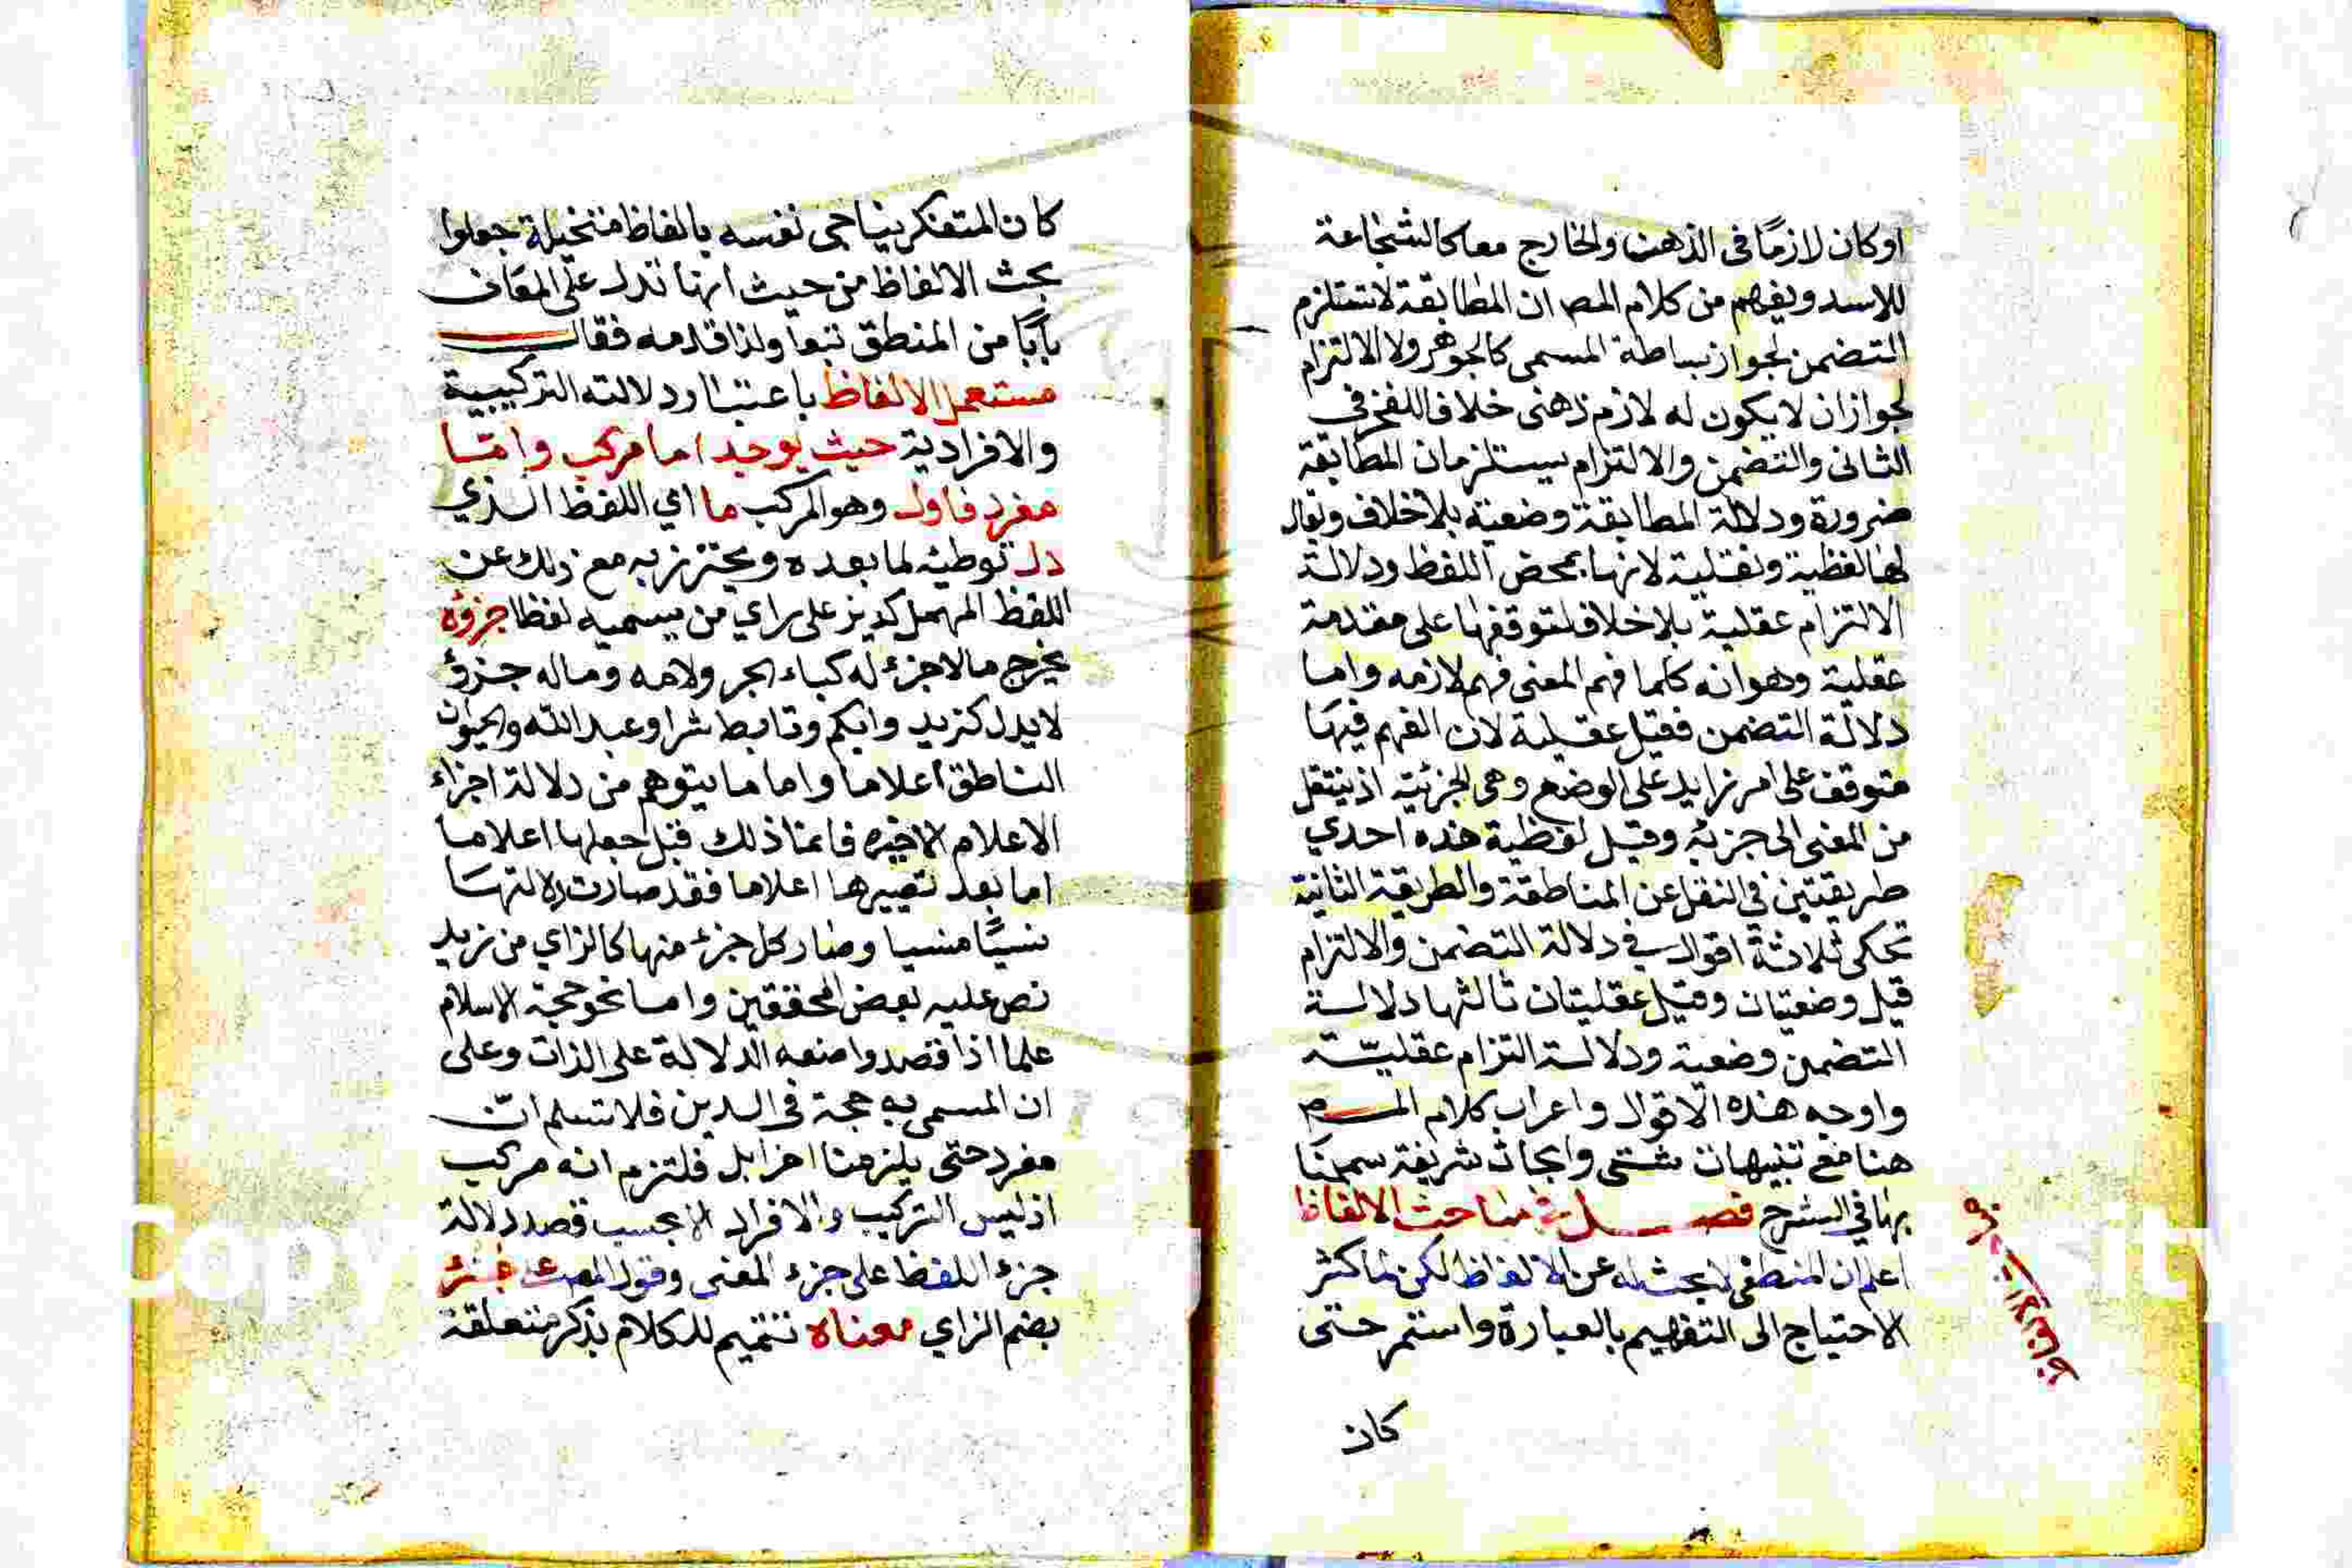 اوكان لازمًا في الذهن والخارج معا كالشجاعة
للاسد ويفهم من كلام المص ان المطابقة لاتستلزم
التضمن لجواز بساطة المسمى كالجوهر ولا الالتزام
لجوازان لايكون له لازم ذهنى خلافاللفخر في
الثانى والتضمن والالتزام يستلزمان المطابقة
ضرورة ودلالة المطابقة وضعية بلاخلاف ويقال
لهالفظية ونقلية لانها بمحض اللفظ ودلالة
الالتزام عقلية بلاخلاف لتوقفها على مقدمة
عقلية وهوانه كلما فهم المعنى فهم لازمه واما
دلالة التضمن فقيل عقلية لان الفهم فيها
متوقف على امر زايد على الوضع وهى الجزئية اذينتقل
من المعنى الى جزئه وقيل لفظية هذه احدي
طريقتين في النقل عن المناطقة والطريقة الثانية
تحكى ثلاثة اقوال في دلالة التضمن والالتزام
قيل وضعيتان وقيل عقليتان ثالثها دلالة
التضمن وضعية ودلالة التزام عقلية
واوجه هذه الاقوال واعراب كلام المص
هنا مع تنبيهات شتى وابحاث شريفة سمحنا
بها في الشرح فصل في مباحث الالفاظ
اعلم ان المنطقى لابحث له عن الالفاظ لكن لماكثر
الاحتياج الى التفهيم بالعبارة واستمر حتى
كان
كان المتفكر يناجى نفسه بالفاظ متخيلة جعلوا
بحث الالفاظ من حيث انها تدل على المعانى
بابًا من المنطق تبعا ولذا قدمه فقال
مستعمل الالفاظ باعتبار دلالته التركيبية
والافرادية حيث يوجد اما مركب واما
مفرد فاول وهو المركب ما اي اللفظ الذي
دل توطية لما بعده ويحترز به مع ذلك عن
اللفظ المهمل كديز على راي من يسميه لفظا جزؤه
يخرج مالاجزء له كباء الجر ولامه وماله جزؤ
لايدل كزيد وابكم وتابط شرا وعبدالله والحيوان
الناطق اعلاما واما ما يتوهم من دلالة اجزاء
الاعلام الاخيره فانما ذلك قبل جعلها اعلاما
اما بعد تصييرها اعلاما فقد صارت دلالتها
نسيًا منسيا وصار كل جزء منها كالزاي من زيد
نص عليه بعض المحققين واما نحو حجة الاسلام
علما اذا قصد واضعه الدلالة على الذات وعلى
ان المسمى به حجة في الدين فلانسلم ان
مفرد حتى يلزمنا اخرابل فلتزم انه مركب
اذليس التركيب والافراد الابحسب قصد دلالة
جزء اللفظ على جزء المعنى وقول المص على جزؤ
بضم الزاي معناه تتميم للكلام بذكر متعلقة